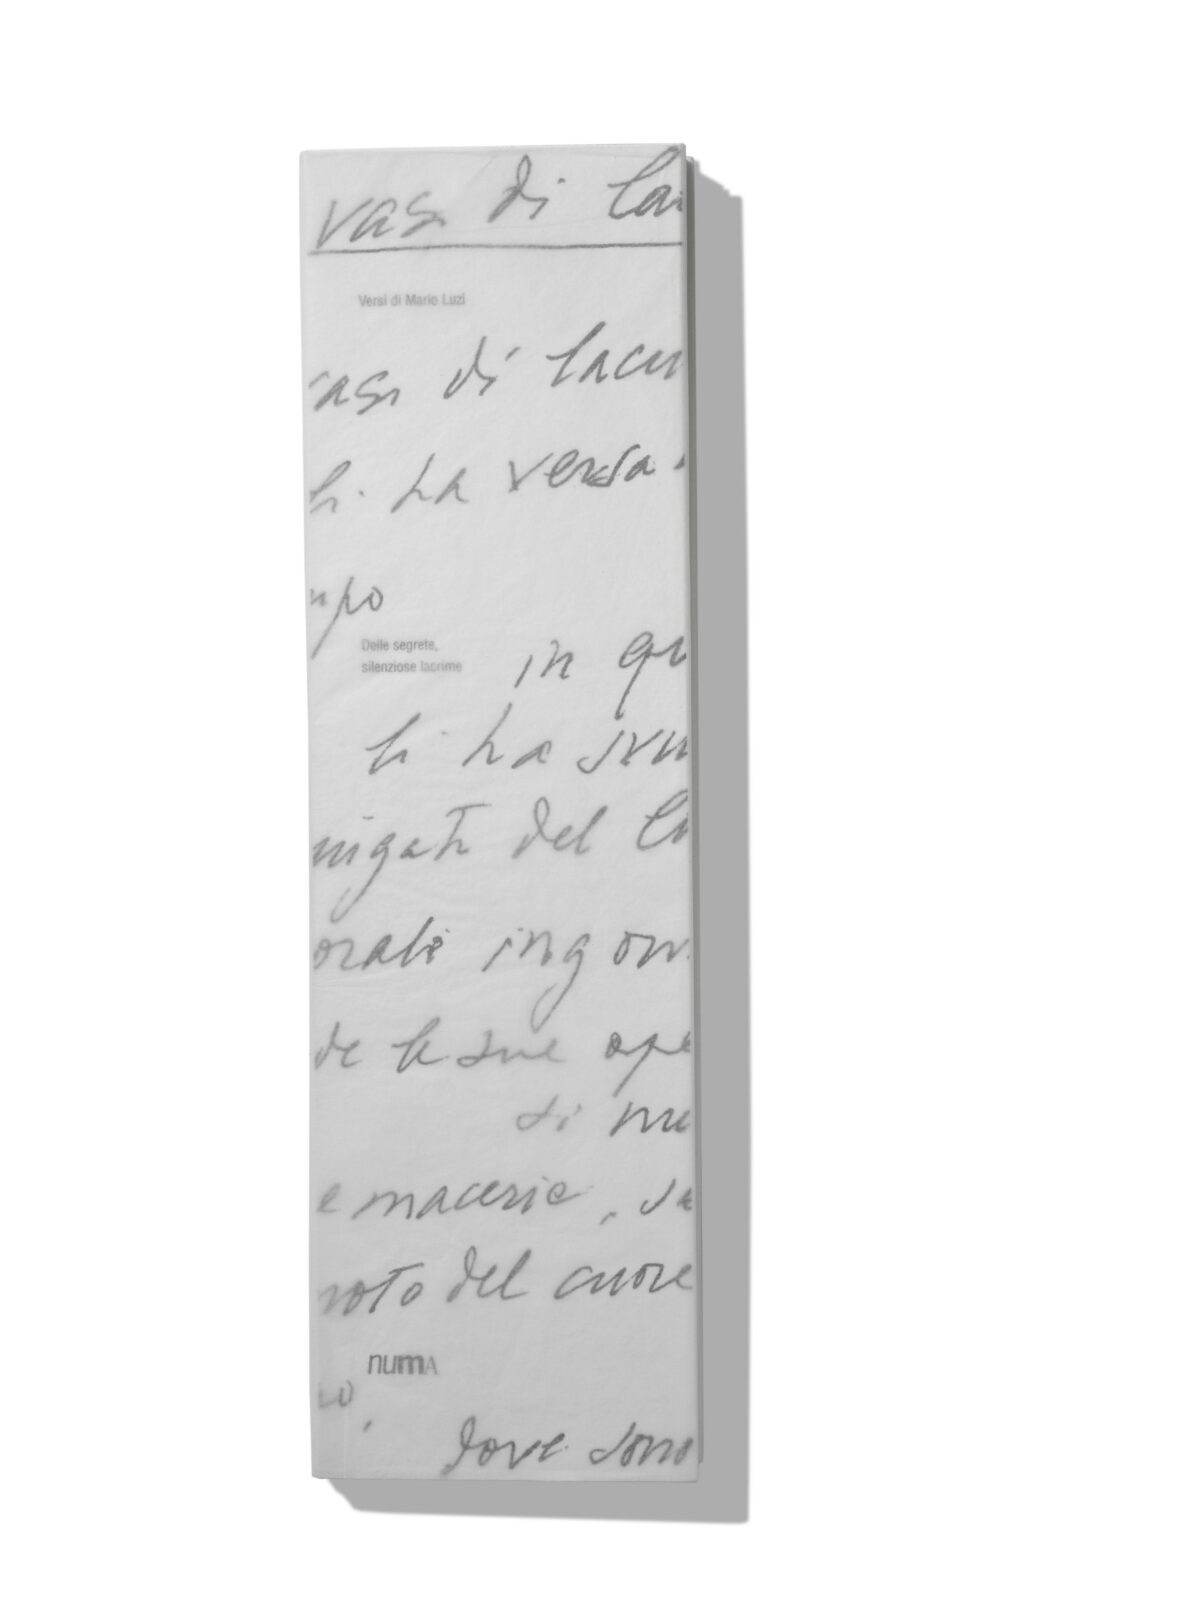 vasi di la
Versi di Mario Luzi
asi di lacri
li ha versa
mpo
Delle segrete,
silenziose lacrime
in qu
li ha
nigati del
orati ingom
de le sue ope
di me
e macerie, su
noto del cuore
numA
o,
dove sono